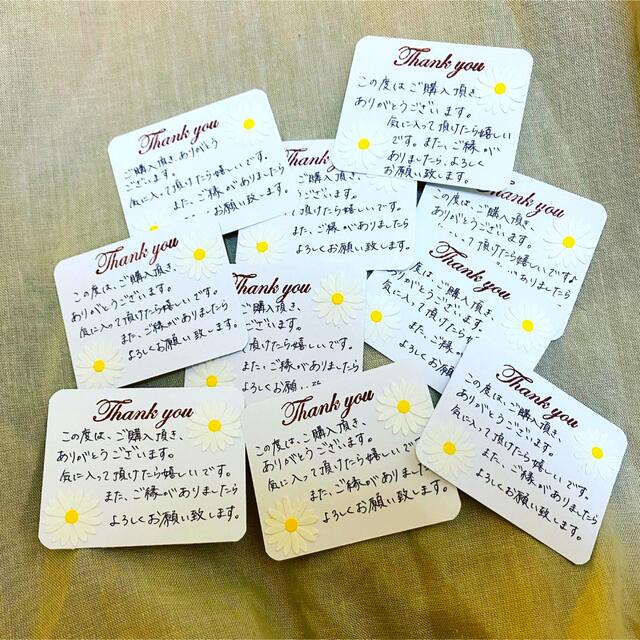 Thank you
この度はご購入頂き
ありがとうございます。
気に入って頂けたら嬉しい
です。また、ご縁が
ありましたら、よろしく
お願い致します。
Thank you
ご購入頂き、ありがとう
ございます。
気に入って頂けたら嬉しいです。
また、ご縁がありましたら
お願い致します。
Thank
ご購入頂き、
ございます。
頂けたら嬉しいです。
また、ご縁がありましたら
よろしくお願い致します。
Thank you
この度は、ご購入頂き、
ありがとうございます。
って頂けたら嬉しいです
ありましたら
Thank you
この度は、ご購入頂き、
ありがとうございます。
気に入って頂けたら嬉しいです。
また、ご縁がありましたら
よろしくお願い致します。
Thank you
ご購入頂き、
ございます。
頂けたら嬉しいです。
また、ご縁がありましたら
よろしくお願
Thank you
度は、ご購入頂き、
ありがとうございます。
気に入って頂けたら
また、ご縁
よろしく
Thank you
この度は、ご購入頂き、
ありがとうございます。
気に入って頂けたら嬉しいです。
また、ご縁がありましたら
よろしくお願い致します。
Thank you
この度は、ご購入頂き、
ありがとうございます。
気に入って頂けたら嬉しいです。
また、ご縁がありましたら
よろしくお願い致します。
Thank you
この度は、ご購入頂き、
ありがとうございます。
気に入って頂けたら嬉しいです。
また、ご縁がありましたら
よろしくお願い致します。